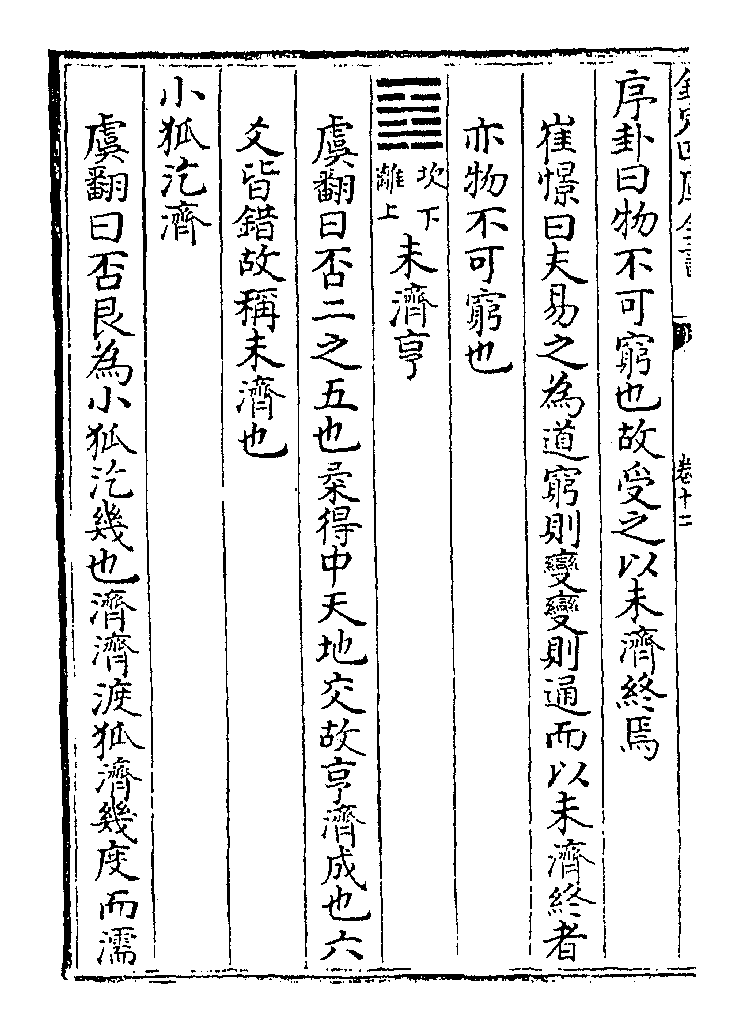 序卦曰物不可窮也故受之以未濟終焉
崔憬曰夫易之為道窮則變變則通而以未濟終者
亦物不可窮也
坎下
離上
未濟亨
虞翻曰否二之五也柔得中天地交故亨濟成也六
爻皆錯故稱未濟也
小狐汔濟
虞翻曰否艮為小狐汔幾也濟濟渡狐濟幾度而濡
卷十二